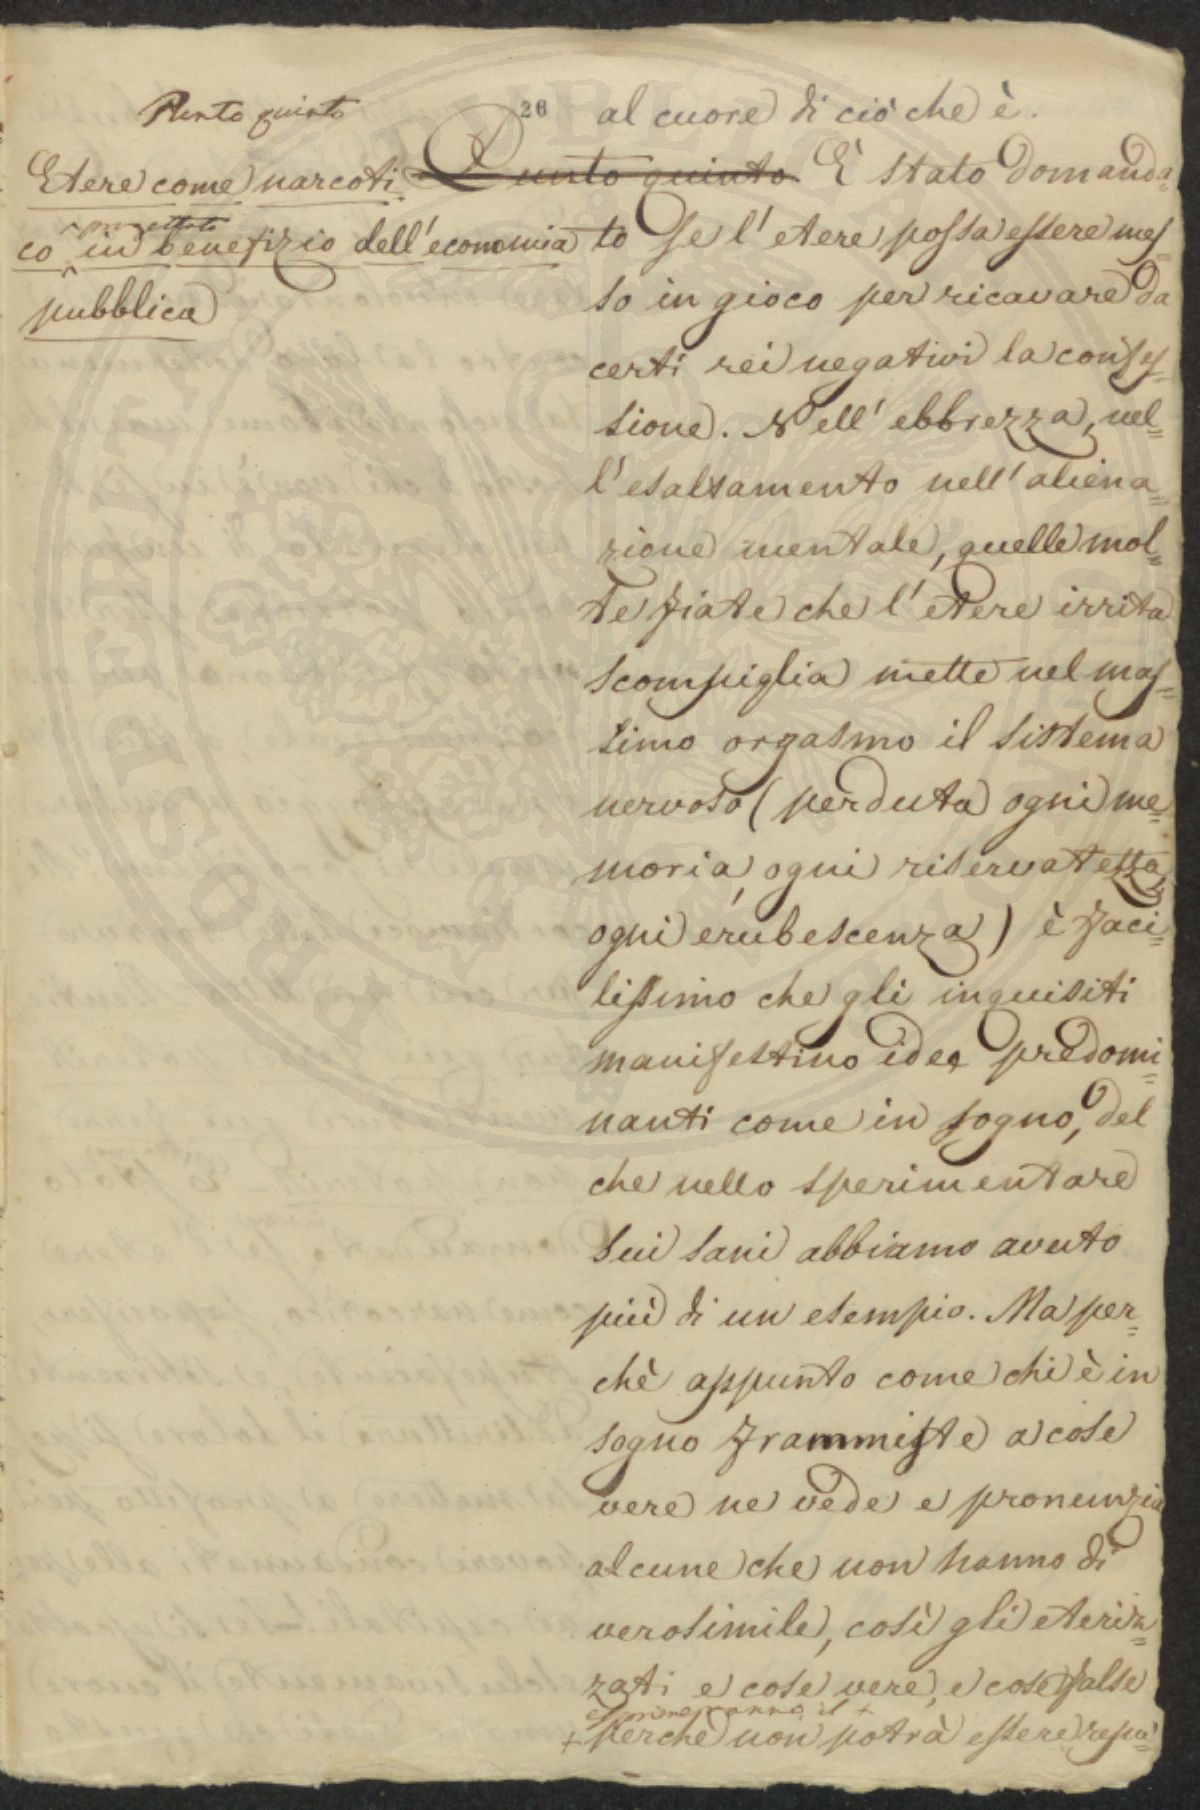 Punto quinto
Etere come narcoti
progettato
co in benefizio dell'economia
pubblica
26
al cuore di ciò che è.
Punto quinto È stato domanda=
to se l'etere possa essere mes=
so in gioco per ricavare da
certi rei negativi la confes=
sione. Nell'ebbrezza, nel=
l'esaltamento nell'aliena=
zione mentale, quelle mol=
te fiate che l'etere irrita
scompiglia mette nel mas=
simo orgasmo il sistema
nervoso (perduta ogni me=
moria, ogni riservatezza,
ogni erubescenza) è faci=
lissimo che gli inquisiti
manifestino idee predomi=
nanti come in sogno, del
che nello sperimentare
sui sani abbiamo avuto
più di un esempio. Ma per=
chè appunto come chi è in
sogno frammiste a cose
vere ne vede e pronunzia
alcune che non hanno di
verosimile, così gli eteriz=
zati e cose vere, e cose false
esprimeranno, il +
+ perchè non potrà essere repu=
PROSPERITATI PUBLICAE